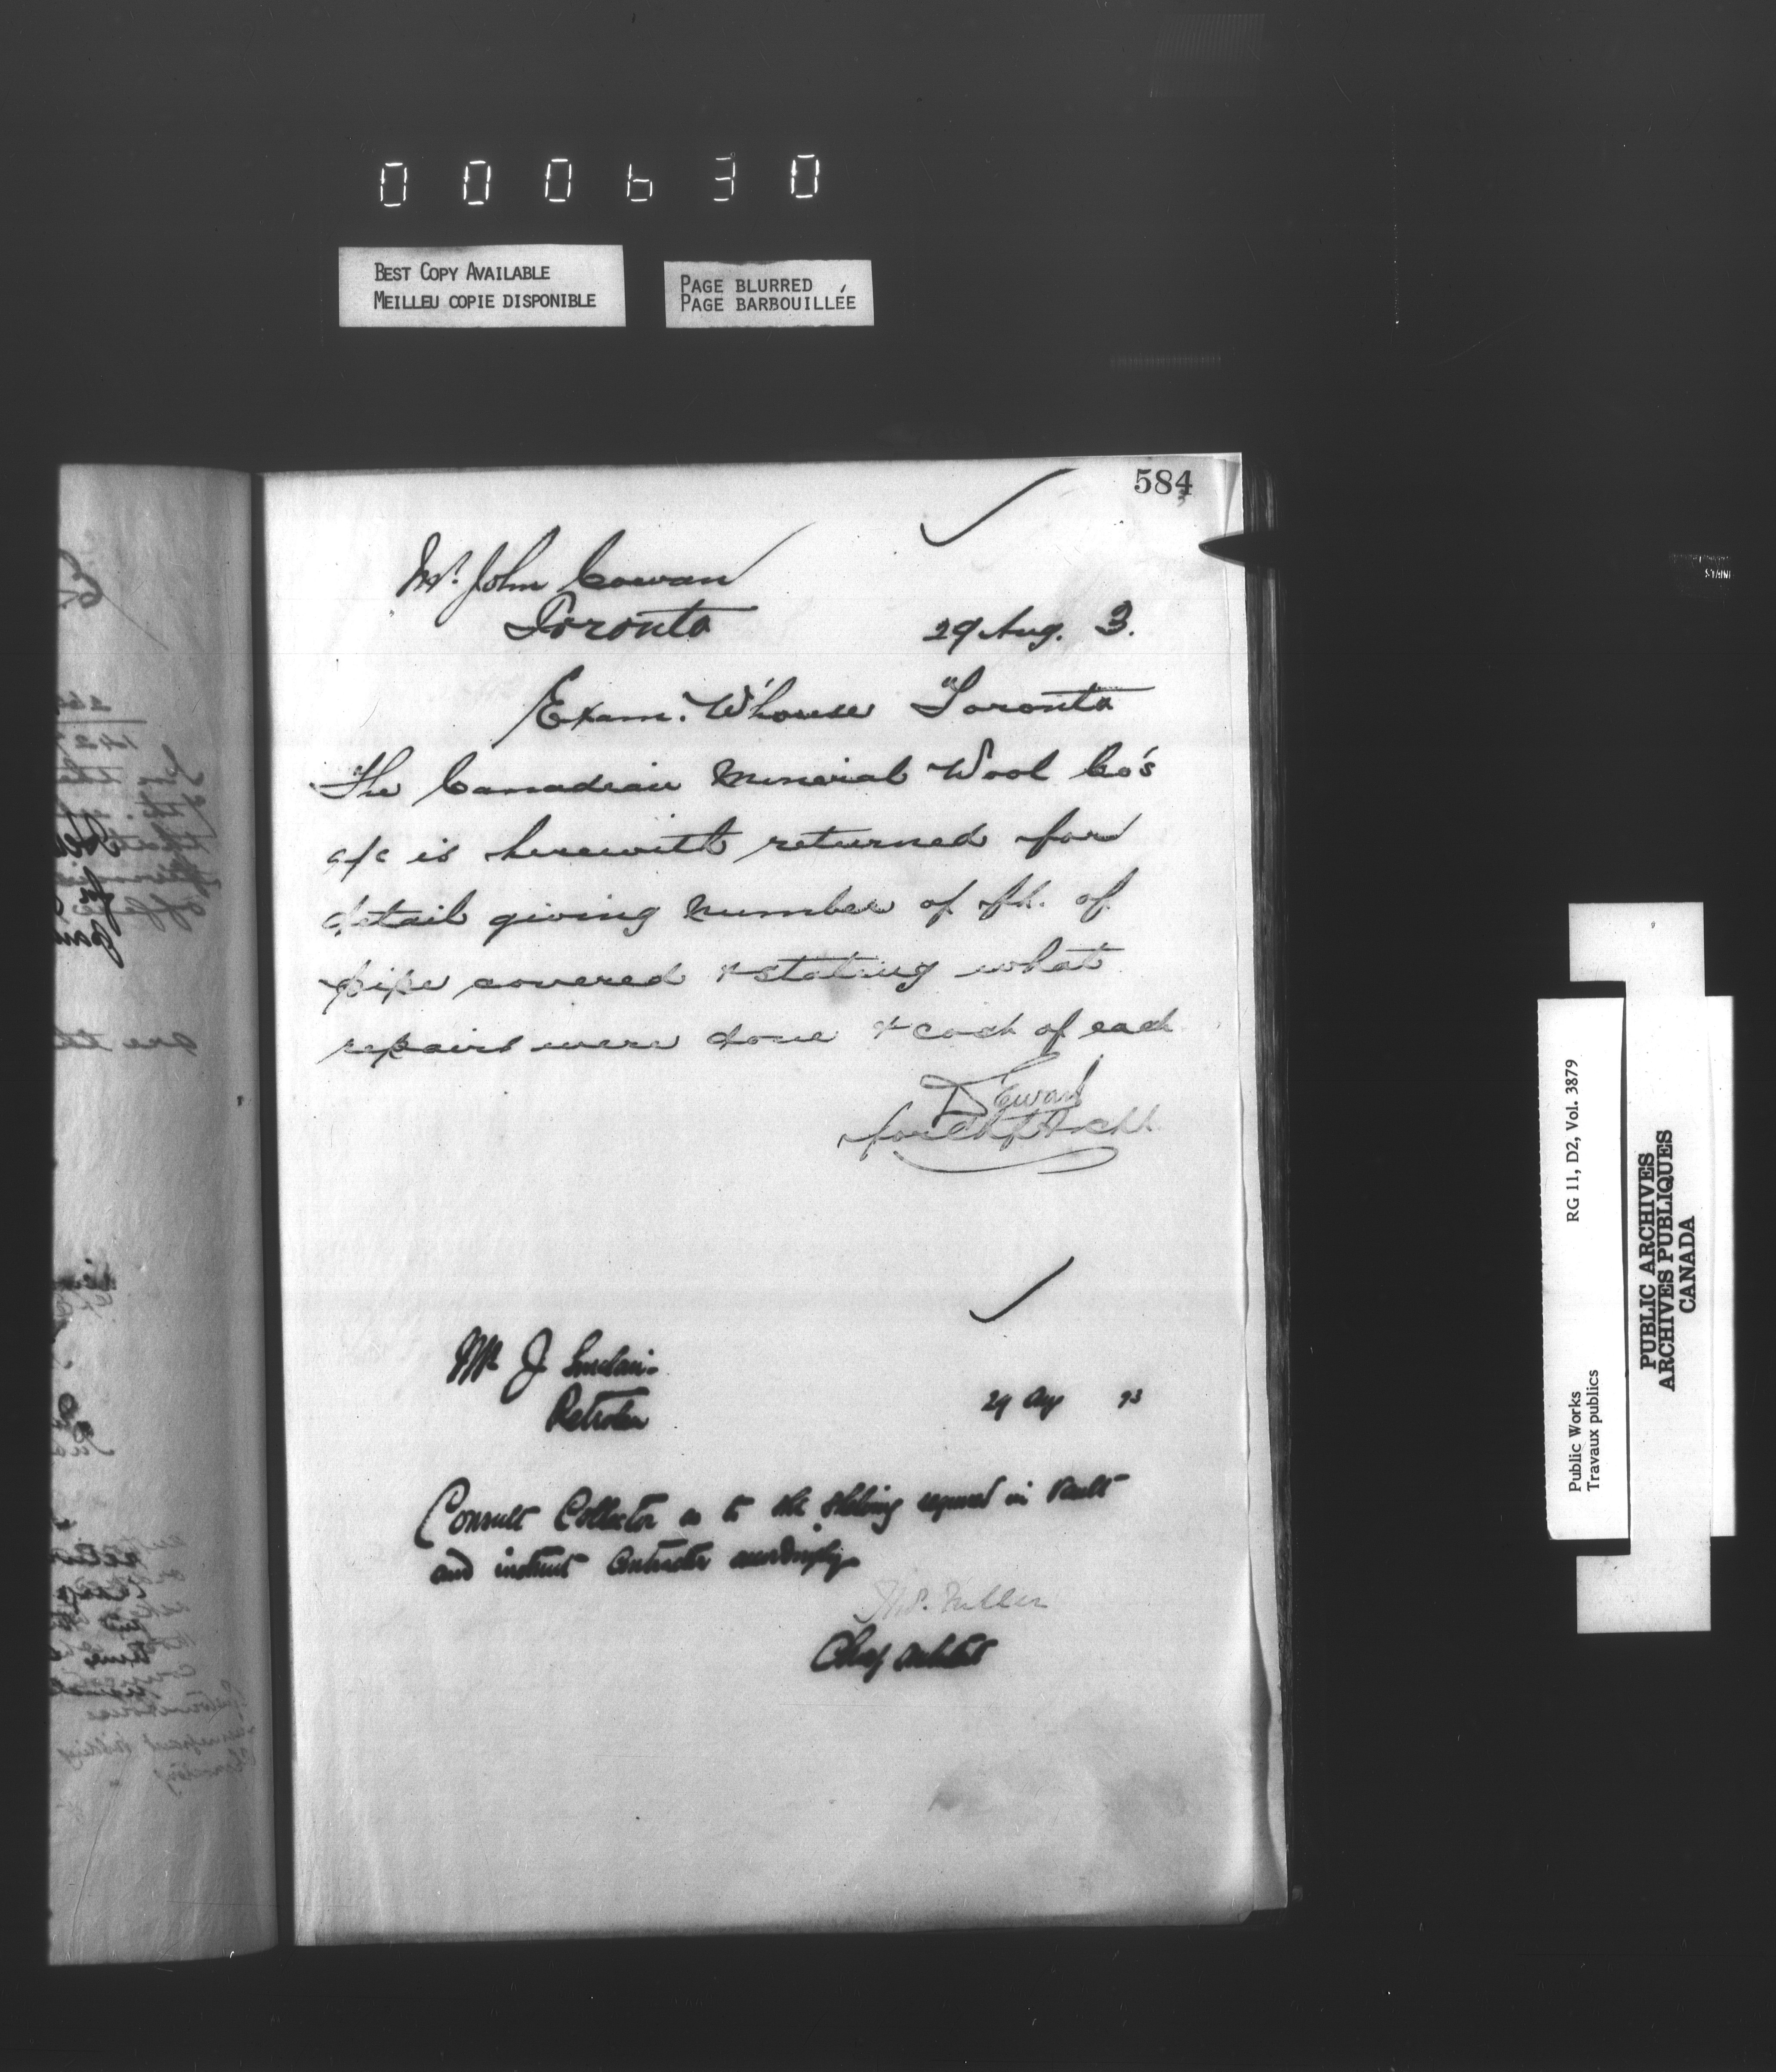 000630
BEST COPY AVAILABLE
MEILLEU COPIE DISPONIBLE
PAGE BLURRED
PAGE BARBOUILLÉE
584
Mr. John Cowan
Toronto
29 Aug. 3.
Exam. W'house Toronto
The Canadian Mineral Wool Co's
a/c is herewith returned for
detail giving number of ft. of
pipe covered & stating what
repairs were done & cost of each
D Ewart
for Chf Archt
Mr J Sinclair
Petrolea
29 Aug 93
Consult Collector as to the shelving required in Vault
and instruct Contractor accordingly
Thos. Fuller
Chief Architect
Public Works
Travaux publics
RG 11, D2, Vol. 3879
PUBLIC ARCHIVES
ARCHIVES PUBLIQUES
CANADA